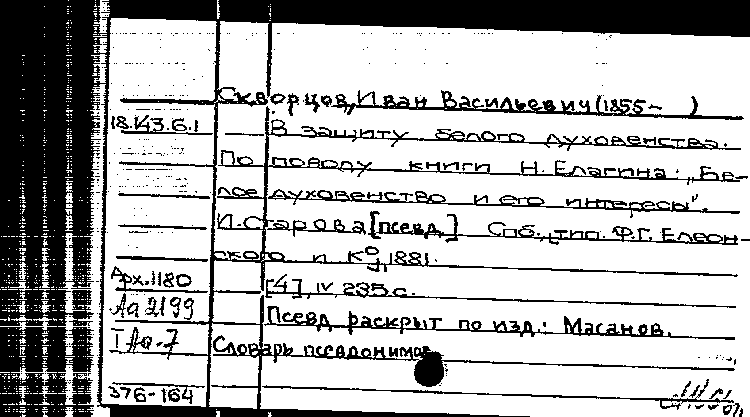 Скворцов, Иван Васильевич (1855- )
18.143.6.1 В защиту белого духовенства.
По поводу книги Н. Елагина: „Бе-
лое духовенство и его интересы".
И. Старова [псевд.] Спб., тип. Ф.Г. Елеон-
ского и Кº, 1881.
Арх. 1180 [4], IV, 235 с.
Аа 2199 Псевд. раскрыт по изд.: Масанов.
I Аа-7 Словарь псевдонимов
376-164